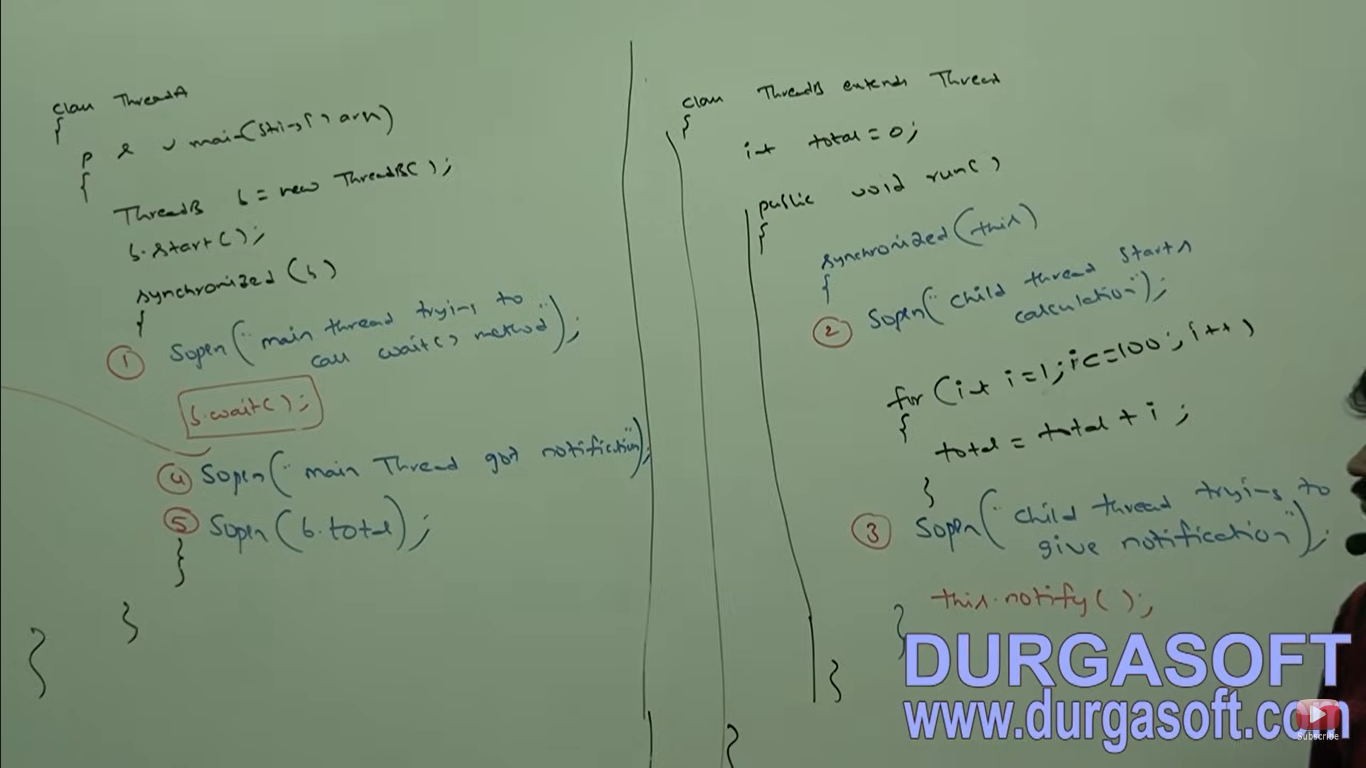 class ThreadA
{
p s v main(String[] args)
{
ThreadB b = new ThreadB();
b.start();
synchronized(b)
{
① Sopln("main thread trying to
call wait() method");
b.wait();
④ Sopln("main Thread got notification");
⑤ Sopln(b.total);
}
}
}
class ThreadB extends Thread
{
int total = 0;
public void run()
{
synchronized(this)
{
② Sopln("child thread starts
calculation");
for(int i=1;i<=100;i++)
{
total = total + i;
}
③ Sopln("child thread trying to
give notification");
this.notify();
}
}
}
DURGASOFT
www.durgasoft.com
Subscribe